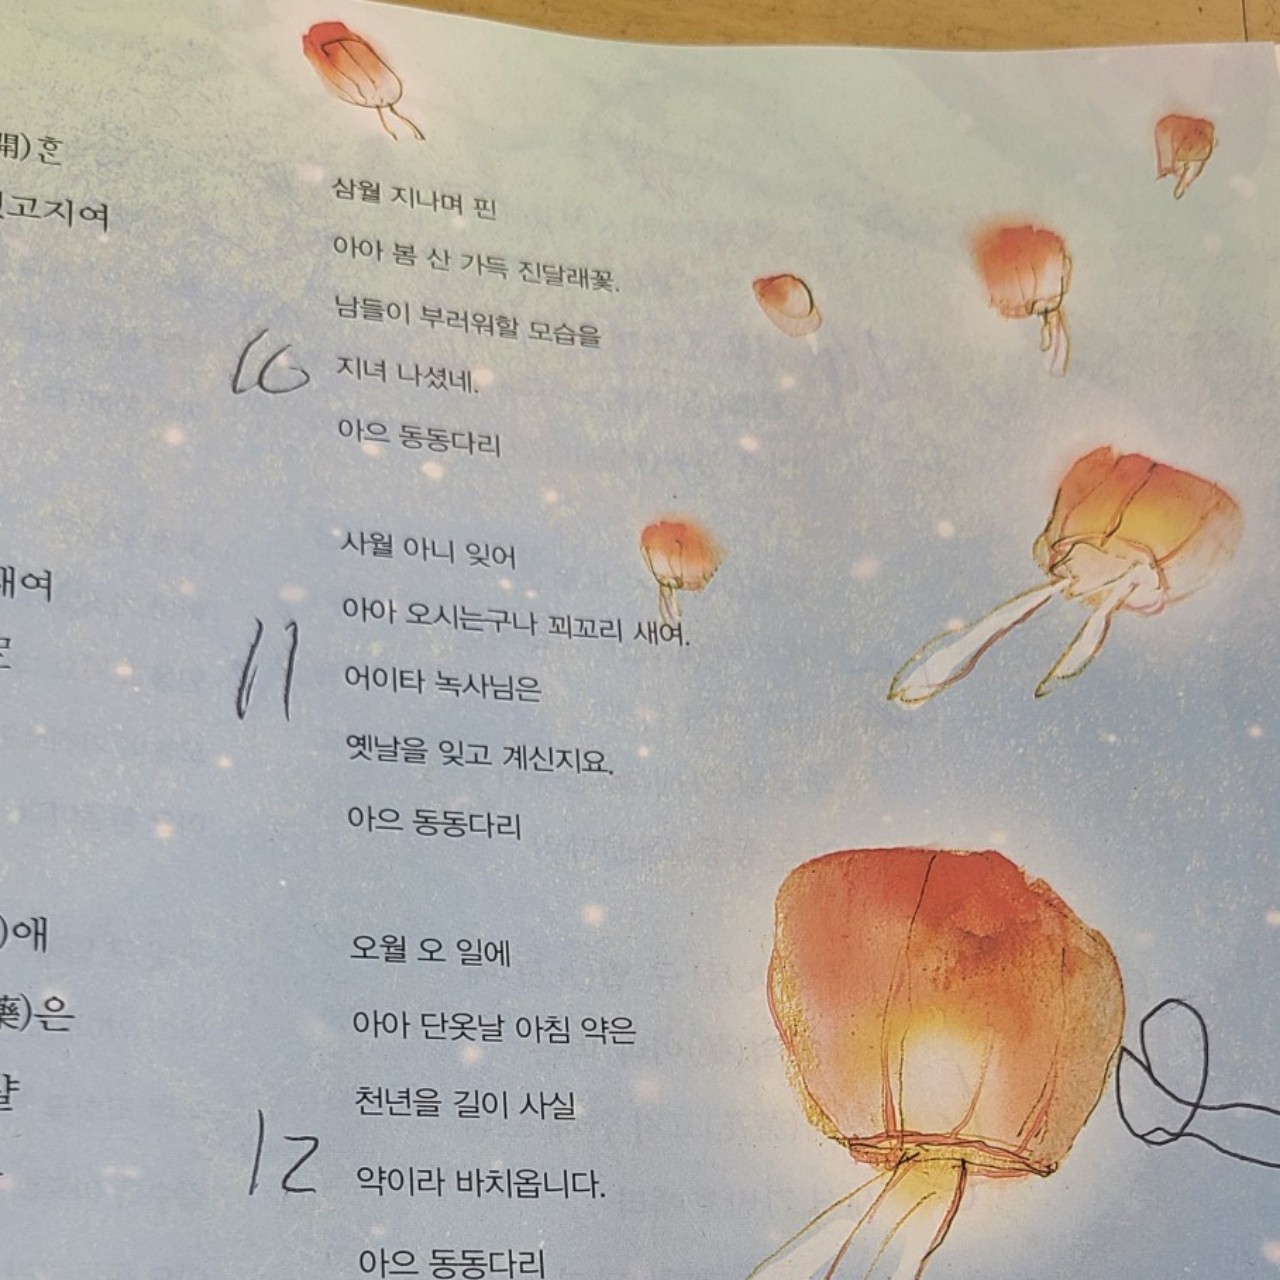 開)한
고지여
여
)애
藥)은
삼월 지나며 핀
아아 봄 산 가득 진달래꽃.
남들이 부러워할 모습을
10 지녀 나셨네.
아으 동동다리
사월 아니 잊어
아아 오시는구나 꾀꼬리 새여.
11 어이타 녹사님은
옛날을 잊고 계신지요.
아으 동동다리
오월 오 일에
아아 단옷날 아침 약은
천년을 길이 사실
12 약이라 바치옵니다.
아으 동동다리